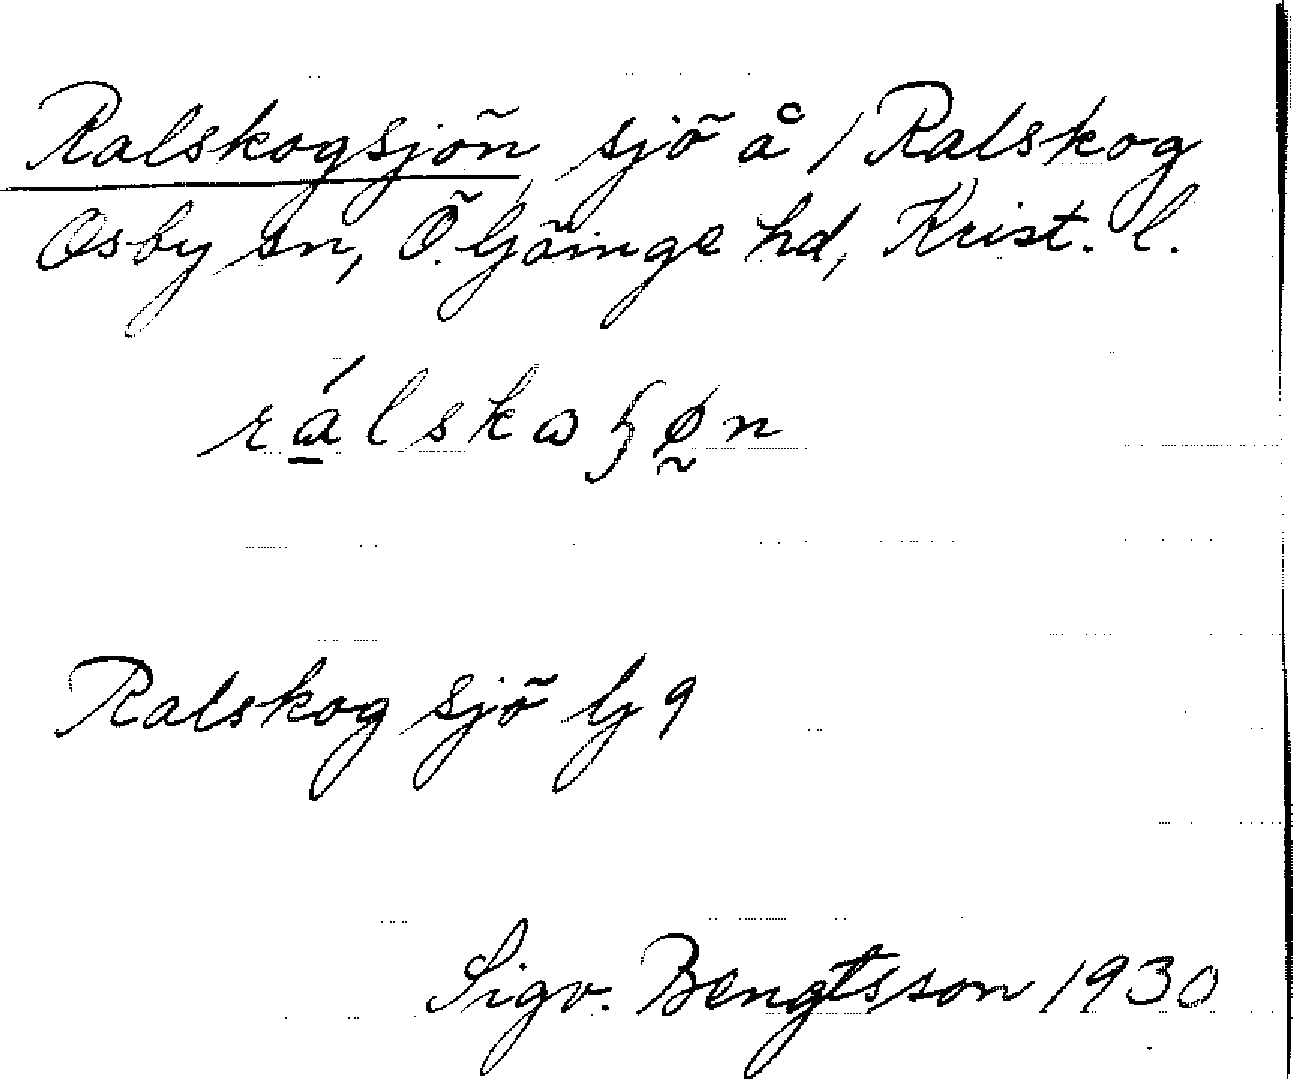 Ralskogsjön sjö å 1 Ralskog
Osby sn, Ö. Göinge hd, Krist. l.
rálskaɧøn
Ralskog sjö G 9
Sigv. Bengtsson 1930